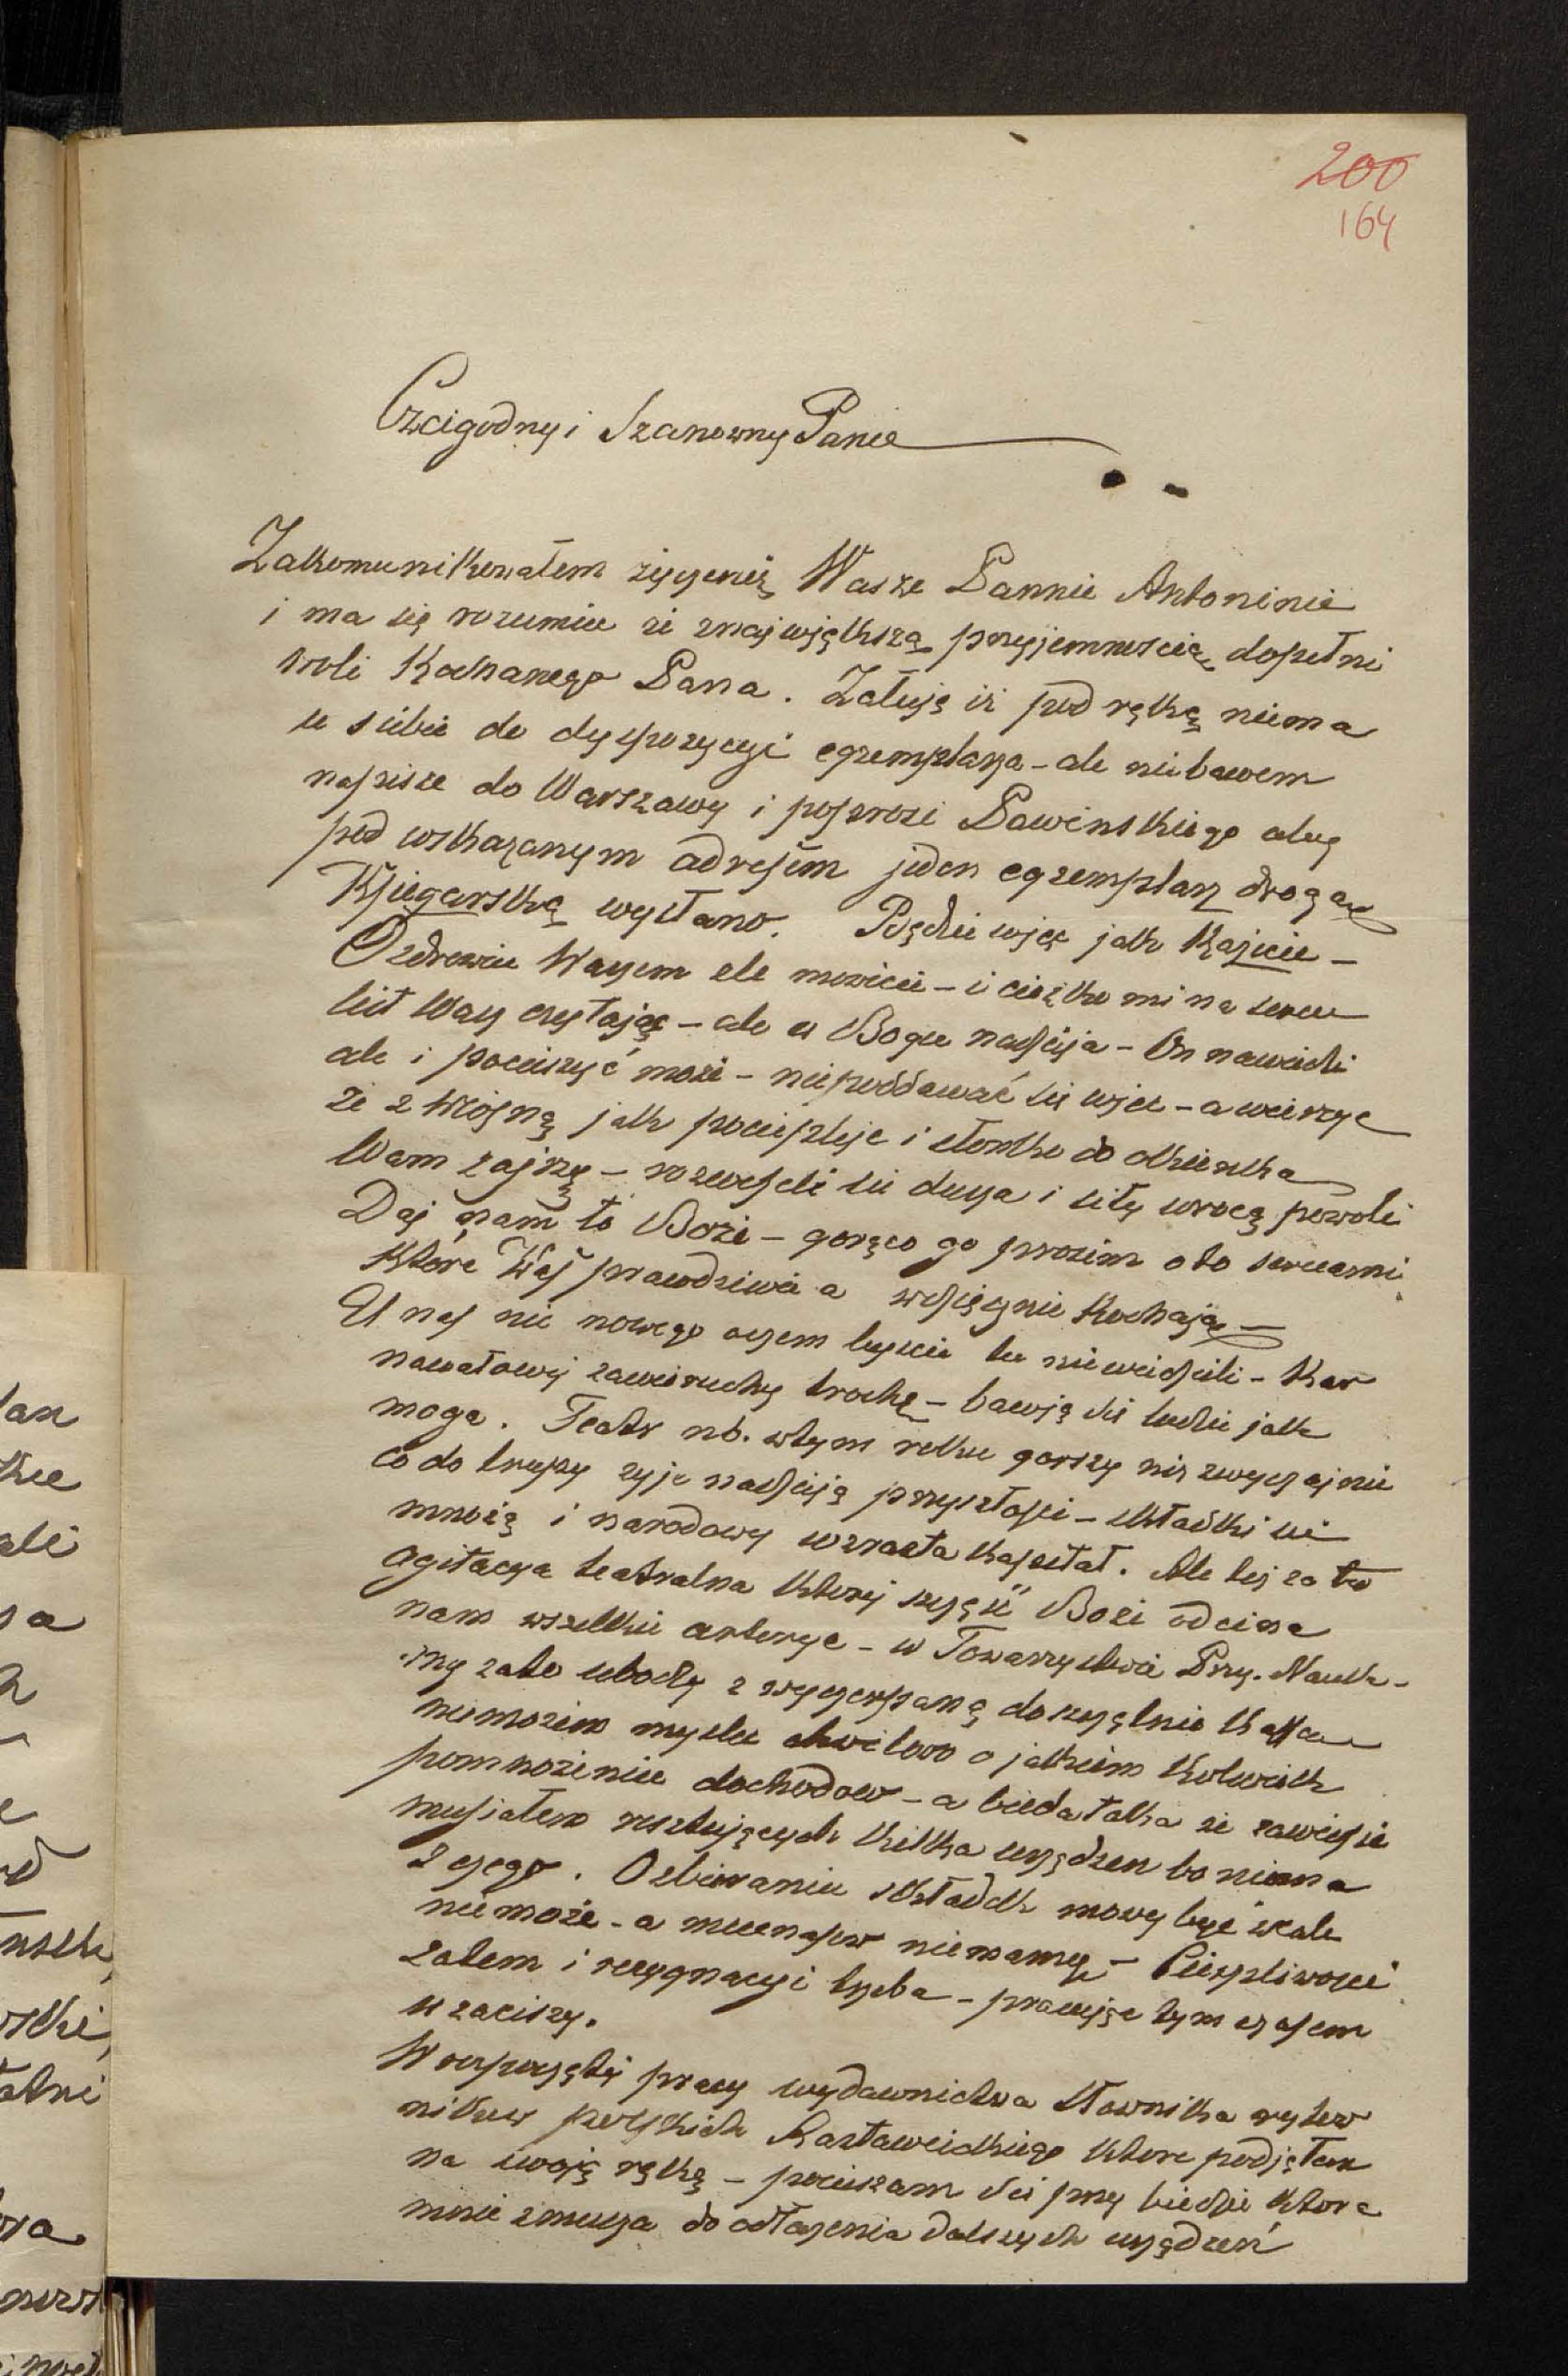 200
164
Czcigodny i Szanowny Panie
Zakomunikowałem życzenię Wasze Pannie Antoninie
i ma się rozumie że znajwiększą przyjemnością dopełni
woli Kochanego Pana. Załuję iż pod ręką niema
u siebie do dyspozycyi egzemplarza - ale niebawem
napisze do Warszawy i poprosi Pawinskiego aby
pod wskazanym adresem jeden egzemplarz drogą
Księgarską wysłano. Będzie więc jak Każecie -
O zdrowiu Waszem źle mowicie - i ciężko mi na sercu
list Wasz czytając - ale w Bogu nadzieja - On nawiedzi
ale i pocieszyć może - niepoddawać się więc - a wierzyc
że z wiosną jak pociepleje i słonko do okienka
Wam zajrzy - rozweseli się dusza i siły wrocą powoli
Daj nam to Boże - gorąco go prosim o to sercami
które Was prawdziwie a wdzięcznie Kochają -
U nas nic nowego czem byscie tu niewidzieli - Kar
nawałowej zawieruchy trochę - bawią się ludzie jak
mogą. Teatr nb. wtym roku gorszy niz zwyczajnie
co do trupy zyje nadzieją przyszłosci - składki się
mnożą i narodowy wzrasta kapitał. Ale tez za to
agitacya teatralna ktorej szczęść Boże odcina
nam wszelkie arterye - w Towarzystwie Przy. Nauk -
my zato ubodzy z wyczerpaną doszczętnie kassą
niemozem myslec chwilowo o jakiem kolwiek
pomnozeniu dochodow - a bieda taka że zawiesic
musiałem resztujących kilka urządzen bo niema
z czego. O zbieraniu składek mowy być wcale
niemoże - a mecenasow niemamy - Cierpliwosci
zatem i rezygnacyi trzeba - pracując tym czasem
w zaciszy.
W rozpoczętej pracy wydawnictwa słownika rytow
nikow polskich Rastawieckiego ktore podjąłem
na swoją rękę - pocieszam się przy biedzie ktora
mnie zmusza do odłozenia dalszych urządzeń